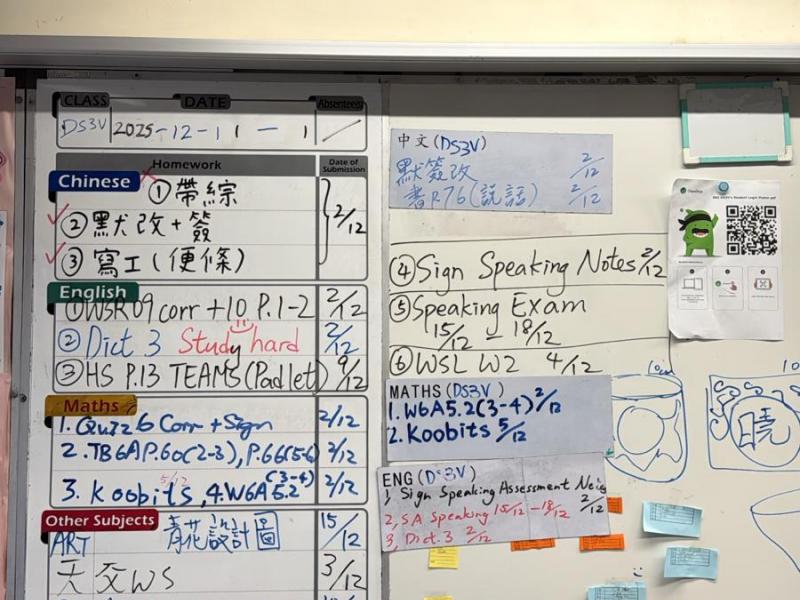 CLASS DATE Absentees
DS3V 2025-12-1 1 — 1 /
Homework Date of Submission
Chinese
① 帶綜
② 默改+簽
③ 寫工(便條)
2/12
English
①WSR09 corr+10 P.1-2 2/12
② Dict 3 Study hard 2/12
③HS P.13 TEAMS(Padlet) 9/12
Maths
1. Quiz 6 Corr + Sign 2/12
2. TB6AP.60(2-3), P.66(5-6) 2/12
5/12
3. Koobits, 4.W6A5.2(3-4) 2/12
Other Subjects
ART 青花設計圖 15/12
天文WS 3/12
中文(DS3V)
默簽改 2/12
書R76(説話) 2/12
④Sign Speaking Notes 2/12
⑤Speaking Exam
15/12 – 18/12
⑥WSL W2 4/12
MATHS (DS3V)
1. W6A5.2(3-4) 2/12
2. Koobits 5/12
ENG (DS3V)
1, Sign Speaking Assessment 2/12
2, SA Speaking 15/12 – 18/12
3, Dict.3 2/12
10cm
曉